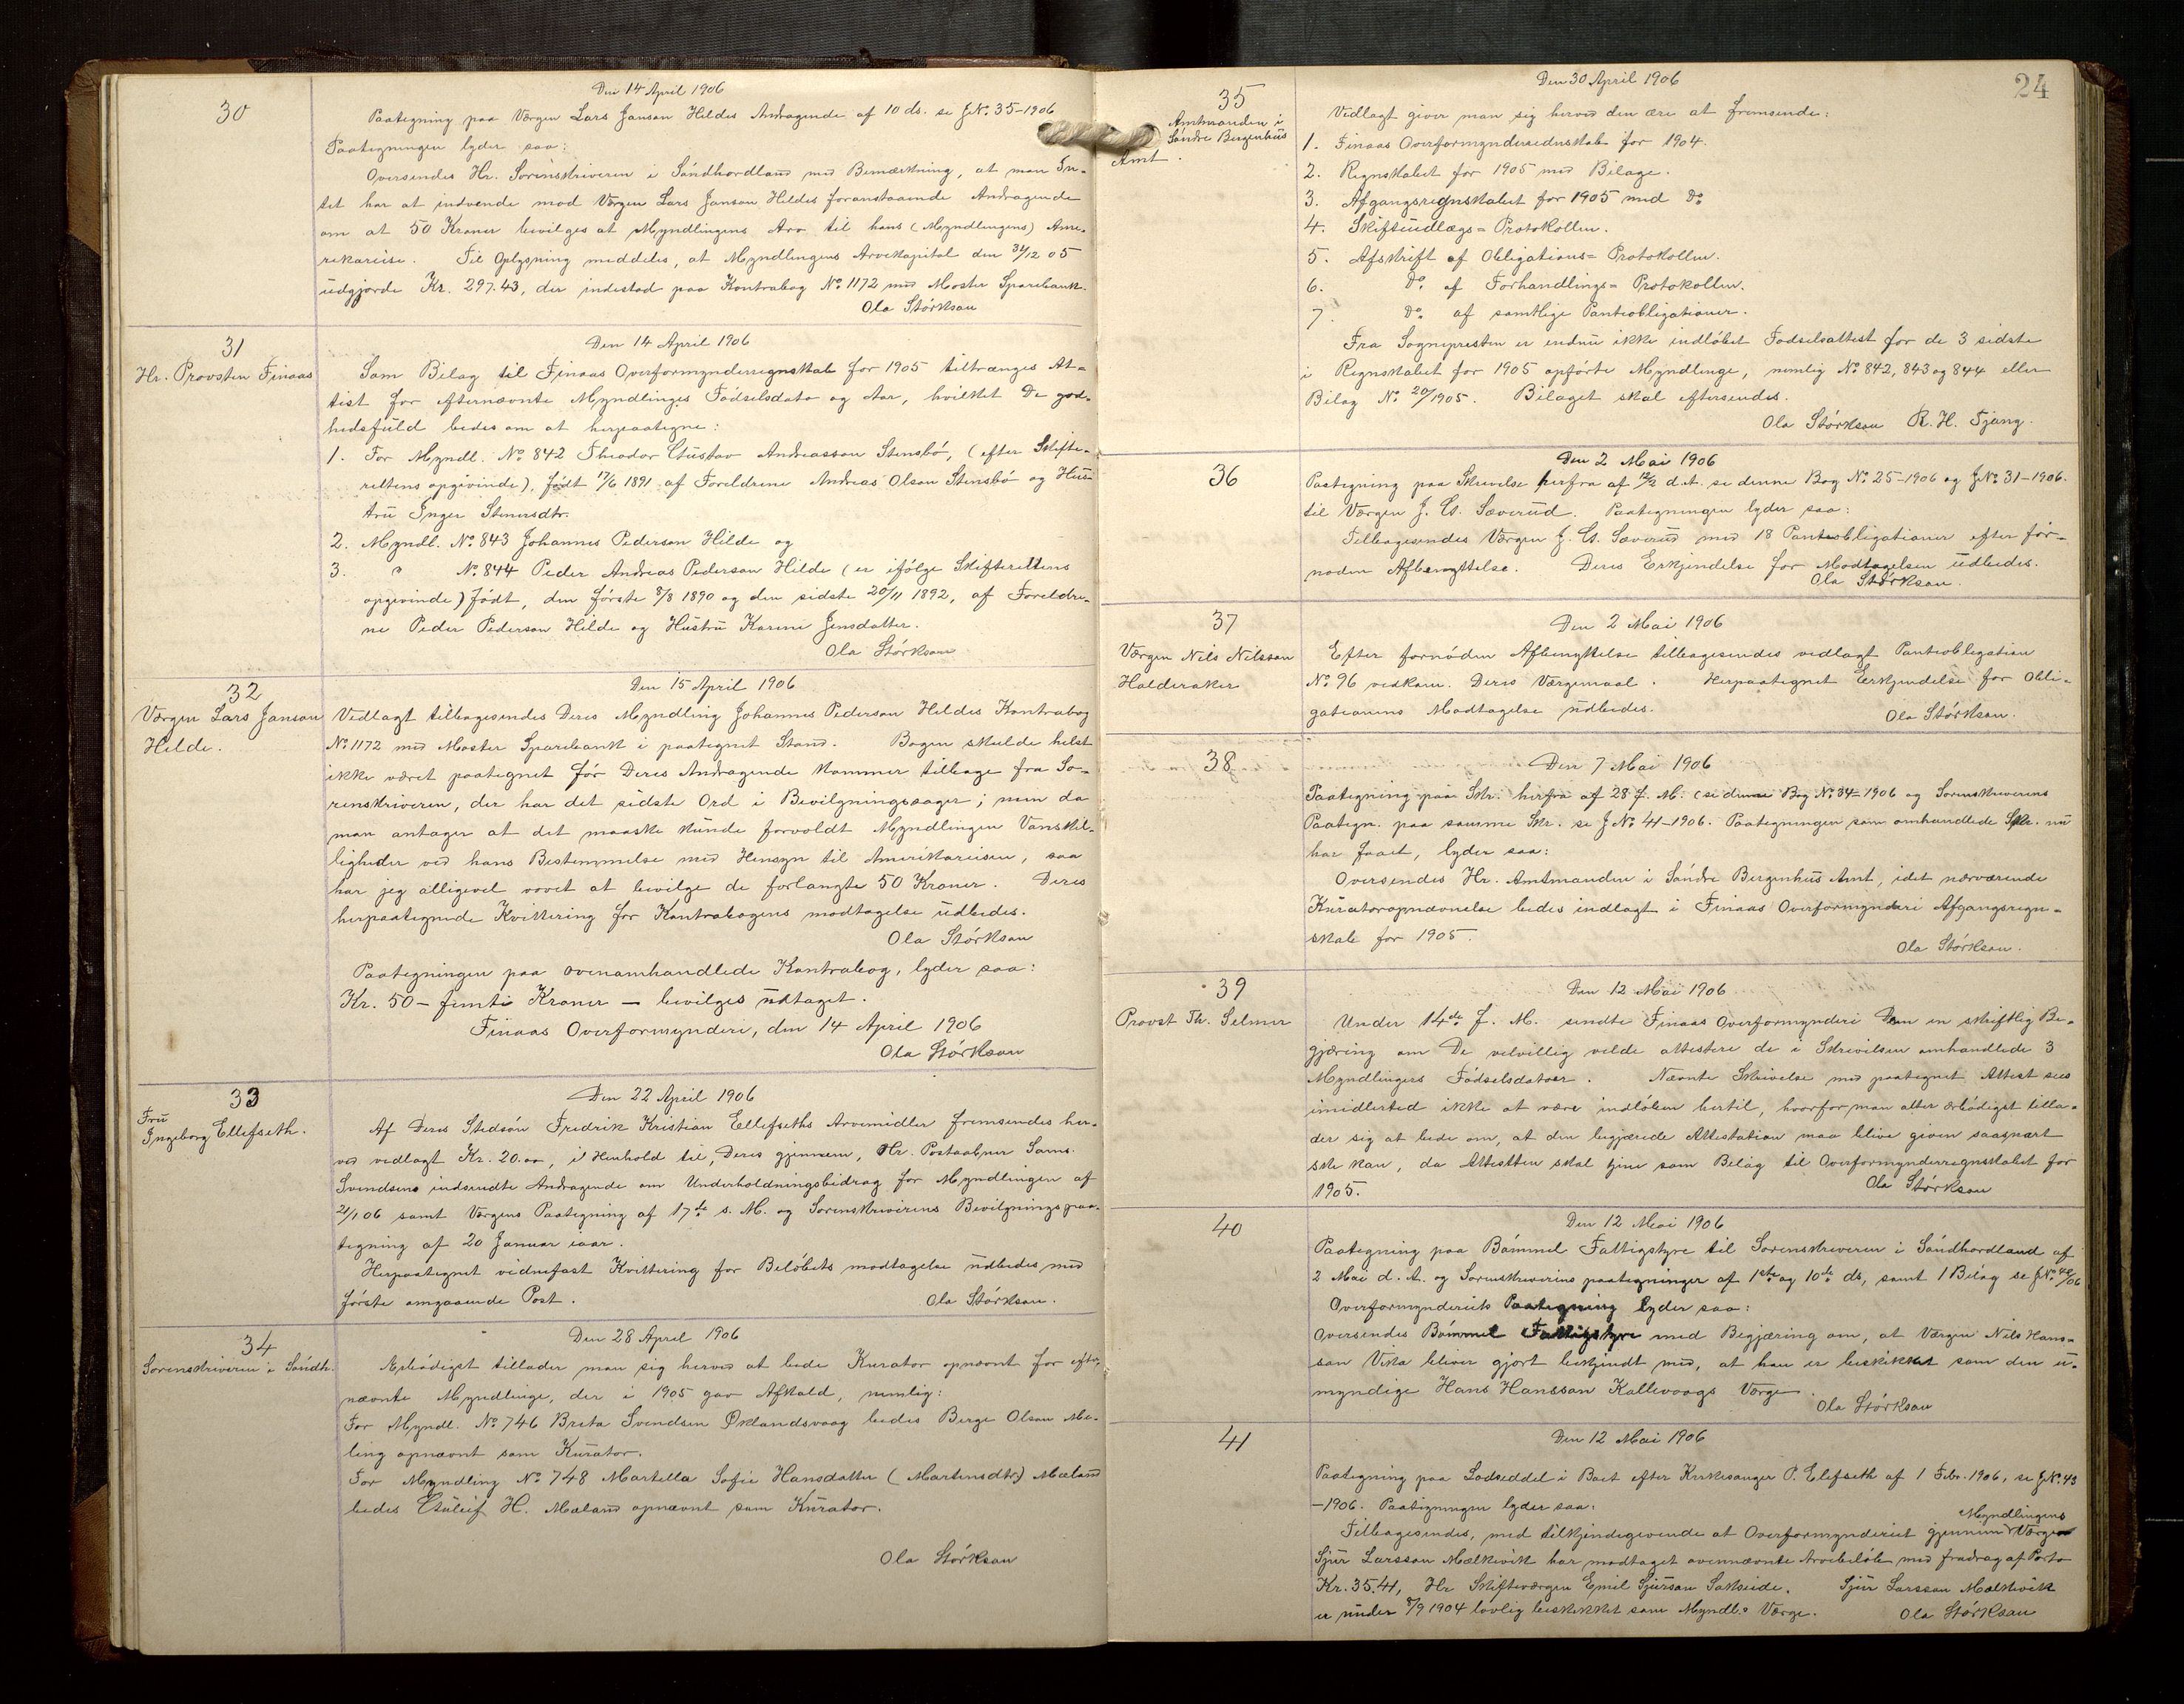 30
Den 14 April 1906
Paategning paa Værgen Lars Janson Hildes Andragende af 10 ds. se J.No. 35-1906
Paategningen lyder saa:
Oversendes Hr. Sorenskriveren i Söndhordland med Bemærkning, at man In-
tet har at indvende mod Værgen Lars Janson Hildes foranstaaende Andragende
om at 50 Kroner bevilges at Myndlingens Arv til hans (Myndlingens) Ame-
rikareise. Til Oplysning meddeles, at Myndlingens Arvekapital den 31/12 05
udgjorde Kr. 297.43, der indestod paa Kontrabog No. 1172 med Moster Sparebank.
Ola Störkson
31
Hr. Provsten Finaas
Den 14 April 1906
Som Bilag til Finaas Overformynderregnskab for 1905 tiltrænges At-
test for efternævnte Myndlinges Födselsdato og Aar, hvilket De god-
hedsfuld bedes om at herpaategne:
1. For Myndl. No. 842 Theodor Gustav Andreasson Stensbö, (efter Skifte-
rettens opgivende), födt 17/6 1891 af Foreldrene Andreas Olson Stensbö og Hus-
tru Inger Stenersdtr.
2. Myndl. No. 843 Johannes Pederson Hilde og
3. " No. 844 Peder Andreas Pederson Hilde (er ifölge Skifterettens
opgivende) födt, den förste 8/8 1890 og den sidste 20/11 1892, af Foreldre-
ne Peder Pederson Hilde og Hustru Karine Jensdatter.
Ola Störkson
32
Værgen Lars Janson
Hilde.
Den 15 April 1906
Vedlagt tilbagesendes Deres Myndling Johannes Pederson Hildes Kontrabog
No. 1172 med Moster Sparebank i paategnet Stand. Bogen skulde helst
ikke været paategnet för Deres Andragende kommer tilbage fra So-
renskriveren, der har det sidste Ord i Bevilgningssager; men da
man antager at det maaske kunde forvoldt Myndlingen Vanskil-
ligheder ved hans Bestemmelse med Hensyn til Amerikareisen, saa
har jeg alligevel vovet at bevilge de forlangte 50 Kroner. Deres
herpaategnede Kvittering for Kontrabogens modtagelse udbedes.
Ola Störkson
Paategningen paa ovenomhandlede Kontrabog, lyder saa:
Kr. 50 – femti Kroner — bevilges udtaget.
Finaas Overformynderi, den 14 April 1906
Ola Störkson
33
Fru
Ingeborg Ellefseth.
Den 22 April 1906
Af Deres Stedsön Fredrik Kristian Ellefseths Arvemidler fremsendes her-
ved vedlagt Kr. 20.00, i Henhold til, Deres gjennem, Hr. Postaabner Sams.
Svendsens indsendte Andragende om Underholdningsbidrag for Myndlingen af
21/1 06 samt Værgens Paategning af 17de s. M. og Sorenskriverens Bevilgningspaa-
tegning af 20 Januar iaar.
Herpaategnet vidnefast Kvittering for Belöbets modtagelse udbedes med
förste omgaaende Post.
Ola Störkson.
34
Sorenskriveren i Söndh.
Den 28 April 1906
Ærbödigst tillader man sig herved at bede Kurator opnævnt for efter-
nævnte Myndlinge, der i 1905 gav Afkald, nemlig:
For Myndl. No. 746 Brita Svendsen Øklandsvaag bedes Berge Olson Me-
ling opnævnt som Kurator.
For Myndling No. 748 Martella Sofie Hansdatter (Martensdtr) Mæland
bedes Guleif H. Mæland opnævnt som Kurator.
Ola Störkson
24
35
Amtmanden i
Söndre Bergenhus
Amt.
Den 30 April 1906
Vedlagt giver man sig herved den ære at fremsende:
1. Finaas Overformynderiednskab for 1904.
2. Regnskabet for 1905 med Bilage.
3. Afgangsregnskabet for 1905 med Do
4. Skifteudlægs=Protokollen.
5. Afskrift af Obligations=Protokollen.
6. Do. af Forhandlings=Protokollen.
7. Do. af samtlige Panteobligationer.
Fra Sognepresten er endnu ikke indlöbet Födselsattest for de 3 sidste
i Regnskabet for 1905 opförte Myndlinge, nemlig No. 842, 843 og 844 eller
Bilag No. 20/1905. Bilaget skal eftersendes.
Ola Störkson R. H. Tjang.
36
Den 2 Mai 1906
Paategning paa Skrivelse herfra af 12/2 d.A. se denne Bog No. 25-1906 og J.No. 31-1906.
til Værgen J. G. Sæverud. Paategningen lyder saa:
Tilbagesendes Værgen J. G. Sæverud med 18 Panteobligationer efter for-
noden Afbenyttelse. Deres Erkjendelse for Modtagelsen udbedes.
Ola Störkson.
37
Værgen Nils Nilsson
Halderaker
Den 2 Mai 1906
Efter fornöden Afbenyttelse tilbagesendes vedlagt Panteobligation
No. 96 vedkom. Deres Værgemaal. Herpaategnet Erkjendelse for Obli-
gationens Modtagelse udbedes.
Ola Störkson.
38
Den 7 Mai 1906
Paategning paa Skr. herfra af 28 f. M. (se denne Bog No. 34-1906 og Sorenskriverens
Paategn. paa samme Skr. se J.No. 41-1906. Paategningen som omhandlede Skr. nu
har faaet, lyder saa:
Oversendes Hr. Amtmanden i Söndre Bergenhus Amt, idet nærværende
Kuratoropnævnelse bedes indlagt i Finaas Overformynderi Afgangsregn-
skab for 1905.
Ola Störkson.
39
Provst Th. Selmer
Den 12 Mai 1906
Under 14de f. M. sendte Finaas Overformynderi Dem en skriftlig Be-
gjæring om De velvillig vilde attestere de i Skrivelsen omhandlede 3
Myndlingers Födselsdatoer. Nævnte Skrivelse med paategnet Attest sees
imidlertid ikke at være indlöben hertil, hvorfor man atter ærbödigst tilla-
der sig at bede om, at den begjærede Attestation maa blive given saasnart
ske kan, da Attestten skal tjene som Bilag til Overformynderregnskabet for
1905.
Ola Störkson
40
Den 12 Mai 1906
Paategning paa Bömmel Fattigstyre til Sorenskriveren i Söndhordland af
2 Mai d. A. og Sorenskriverens paategninger af 1ste og 10de ds, samt 1 Bilag se J.No. 42/06
Overformynderiets Paategning lyder saa:
Oversendes Bömmel Fattigstyre med Begjæring om, at Værgen Nils Hans-
son Vika bliver gjort bekjendt med, at han er beskikket som den u-
myndige Hans Hansson Kallevaags Værge.
Ola Störkson
41
Den 12 Mai 1906
Paategning paa Lodseddel i Boet efter Kirkesanger P. Elefseth af 1 Febr. 1906, se J.No. 43
-1906. Paategningen lyder saa:
Tilbagesendes, med tilkjendegivende at Overformynderiet gjennem Myndlingens Værge
Sjur Larsson Mælkevik har modtaget ovennævnte Arvebelöb med fradrag af Porto
Kr. 35.41, Hr Skifteværgen Emil Sjurson Sakseide. Sjur Larsson Mælkevik
er under 8/9 1904 lovlig beskikket som Myndl.s Værge.
Ola Störkson